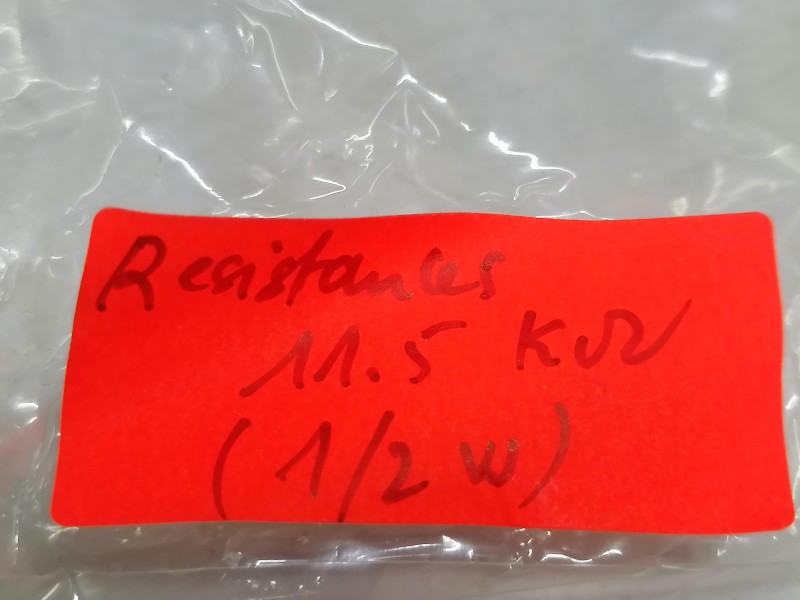 Resistances
11.5 KΩ
(1/2 W)